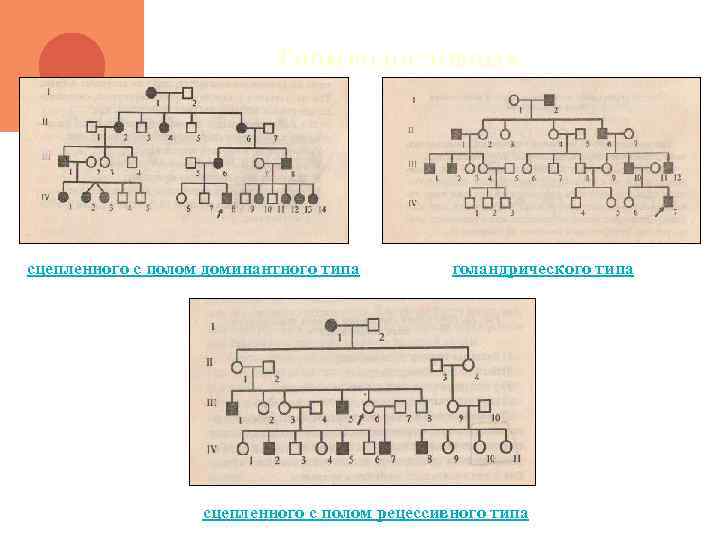 I
1 2
II
1 2 3 4 5 6 7
III
1 2 3 4 5 6 7 8
IV
1 2 3 4 5 6 7 8 9 10 11 12 13 14
I
1 2
II
1 2 3 4 5 6 7
III
1 2 3 4 5 6 7 8 9 10 11 12
IV
1 2 3 4 5 6 7
сцепленного с полом доминантного типа
голандрического типа
I
1 2
II
1 2 3 4
III
1 2 3 4 5 6 7 8 9 10
IV
1 2 3 4 5 6 7 8 9 10 11
сцепленного с полом рецессивного типа